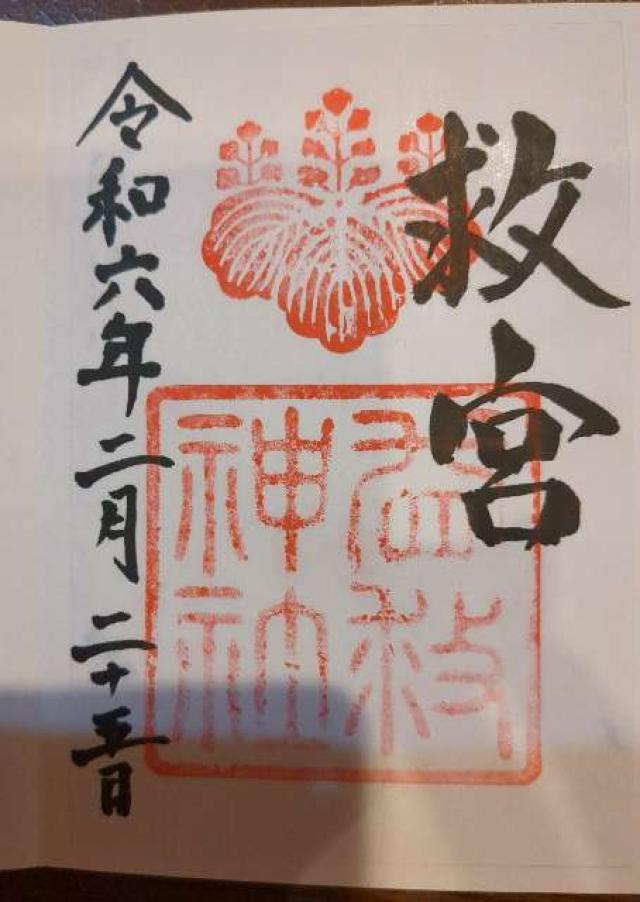 救宮
益救
神社
令和六年二月二十五日